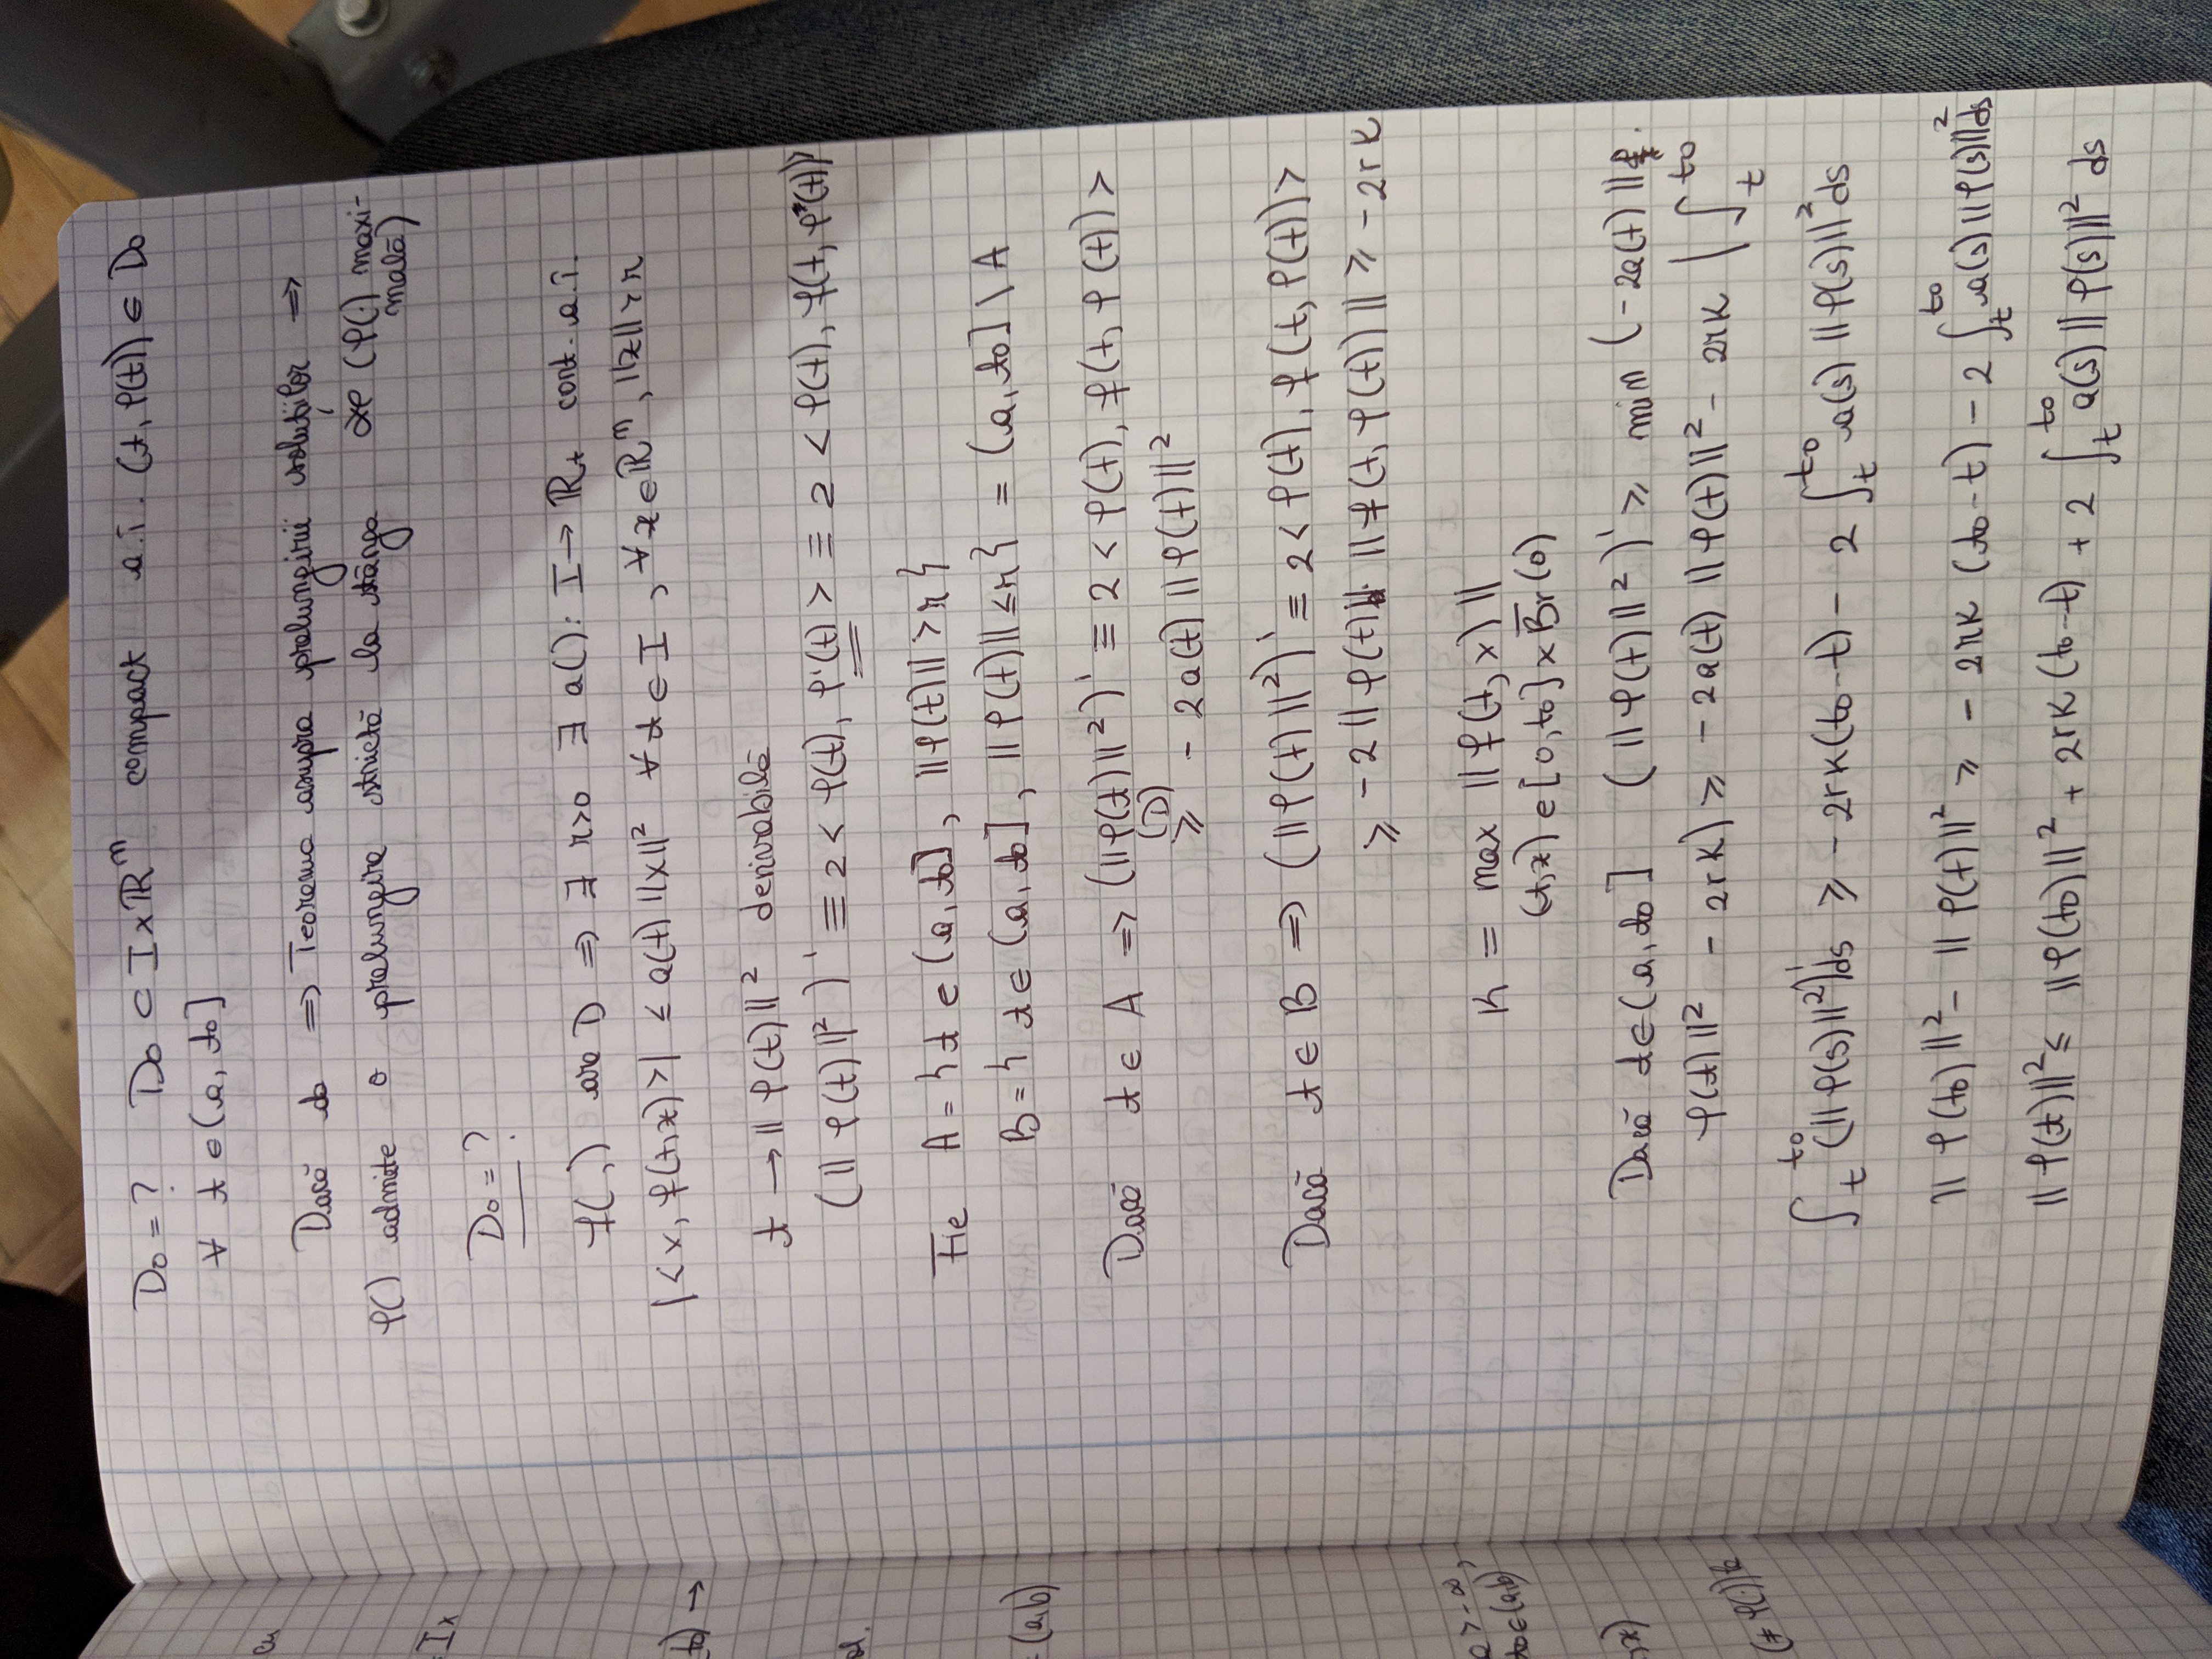 D₀ = ? D₀ ⊂ I×ℝⁿ compact a.î. (t, φ(t)) ∈ D₀
∀ t ∈ (a, t₀]
Dacă da ⟹ Teorema asupra prelungirii soluțiilor ⟹
φ() admite o prelungire strictă la stânga (φ(.) maxi-
mală)
D₀ = ?
f(,) are D ⟹ ∃ r>0 ∃ a(): I → ℝ₊ cont. a.î.
|<x, f(t,x)>| ≤ a(t) ||x||² ∀ t ∈ I, ∀ x ∈ ℝⁿ, ||x|| > r
t → || φ(t) ||² derivabilă
(|| φ(t) ||²)' ≡ 2 < φ(t), φ'(t) > ≡ 2 < φ(t), f(t, φ(t))>
Fie A = { t ∈ (a, t₀], ||φ(t)|| > r }
B = { t ∈ (a, t₀], ||φ(t)|| ≤ r } = (a, t₀] \ A
Dacă t ∈ A ⟹ (||φ(t)||²)' ≡ 2 < φ(t), f(t, φ(t)) >
(D)
≥ - 2a(t) ||φ(t)||²
Dacă t ∈ B ⟹ (||φ(t)||²)' ≡ 2 < φ(t), f(t, φ(t)) >
≥ -2 ||φ(t)|| · ||f(t, φ(t))|| ≥ -2rK
K = max ||f(t,x)||
(t,x) ∈ [0,t₀] × B̄r(0)
Dacă t ∈ (a, t₀] (||φ(t)||²)' ≥ min (-2a(t) ||
φ(t)||² - 2rK) ≥ -2a(t) ||φ(t)||² - 2rK | ∫ₜ^t₀
∫ₜ^t₀ (||φ(s)||²)'ds ≥ -2rK(t₀-t) - 2 ∫ₜ^t₀ a(s) ||φ(s)||² ds
||φ(t₀)||² - ||φ(t)||² ≥ - 2rK (t₀-t) - 2 ∫ₜ^t₀ a(s) ||φ(s)||² ds
||φ(t)||² ≤ ||φ(t₀)||² + 2rK (t₀-t) + 2 ∫ₜ^t₀ a(s) ||φ(s)||² ds
cu
= I×
t₀) →
= (a,b)
a > -∞,
t₀ ∈ (a,b)
,x)
(≠ φ(.))